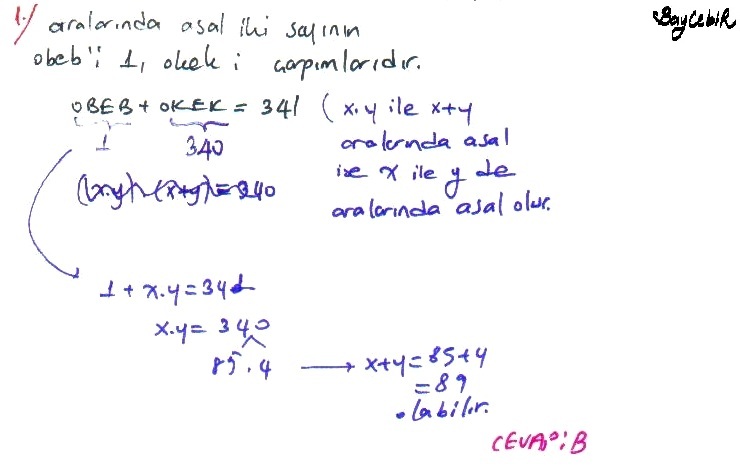 BayCebiR
1.) aralarında asal iki sayının
obeb'i 1, okek i çarpımlarıdır.
OBEB + OKEK = 341 ( x.y ile x+y
1 340 aralarında asal
(x.y).(x+y)=340 ise x ile y de
aralarında asal olur.
1 + x.y = 341
x.y = 340
85.4 → x+y = 85+4
= 89
olabilir.
CEVAP: B